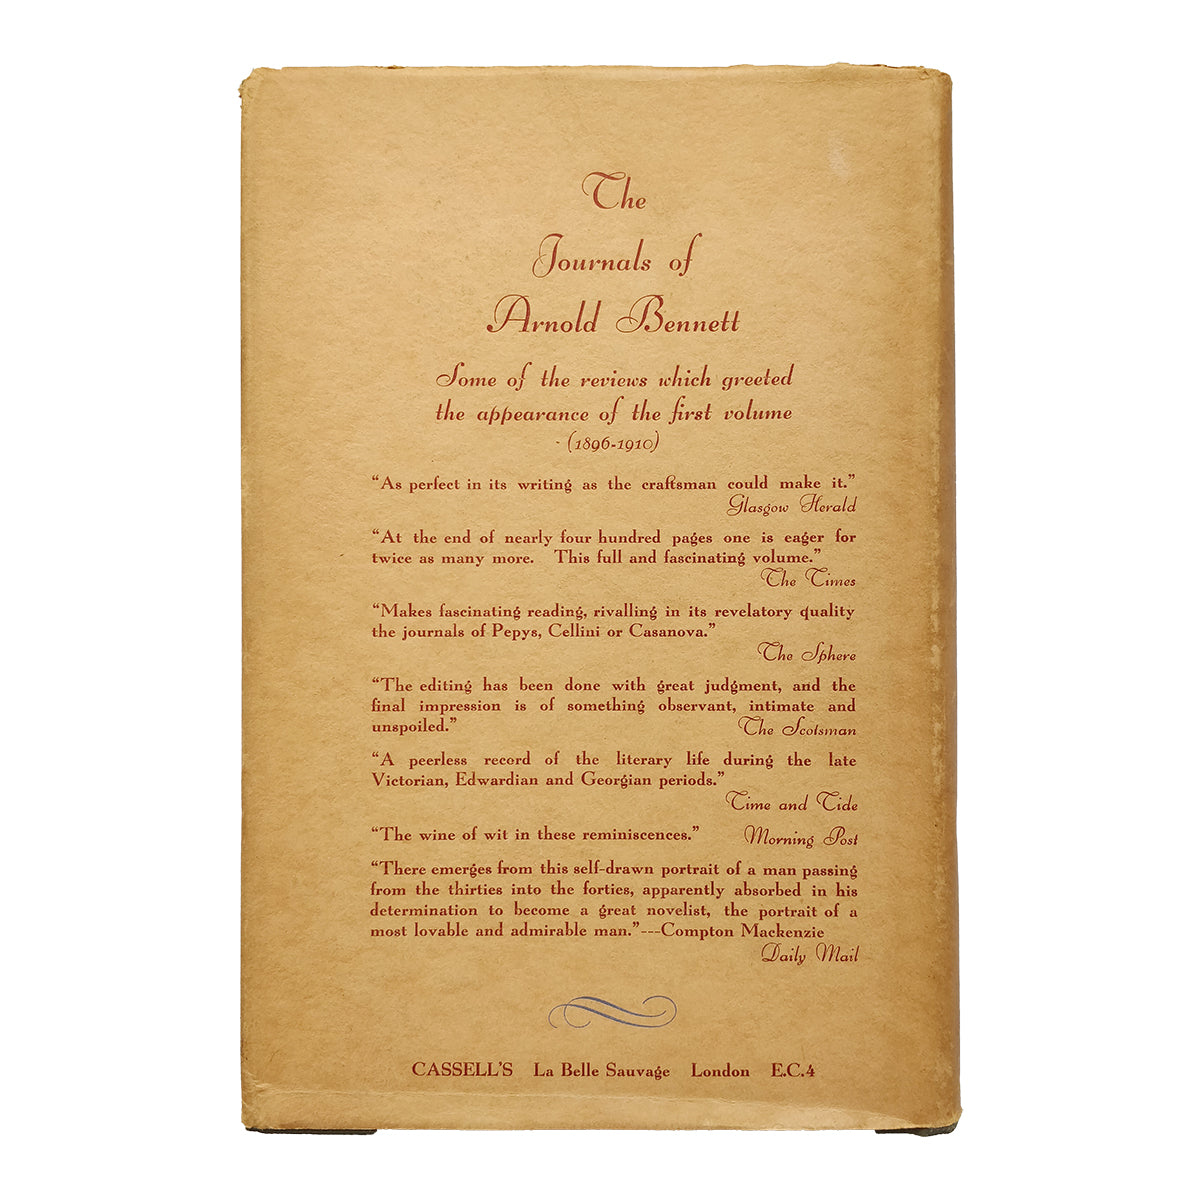 The
Journals of
Arnold Bennett
Some of the reviews which greeted
the appearance of the first volume
(1896-1910)
“As perfect in its writing as the craftsman could make it.”
Glasgow Herald
“At the end of nearly four hundred pages one is eager for
twice as many more. This full and fascinating volume.”
The Times
“Makes fascinating reading, rivalling in its revelatory quality
the journals of Pepys, Cellini or Casanova.”
The Sphere
“The editing has been done with great judgment, and the
final impression is of something observant, intimate and
unspoiled.” The Scotsman
“A peerless record of the literary life during the late
Victorian, Edwardian and Georgian periods.”
Time and Tide
“The wine of wit in these reminiscences.” Morning Post
“There emerges from this self-drawn portrait of a man passing
from the thirties into the forties, apparently absorbed in his
determination to become a great novelist, the portrait of a
most lovable and admirable man.”---Compton Mackenzie
Daily Mail
CASSELL'S La Belle Sauvage London E.C.4